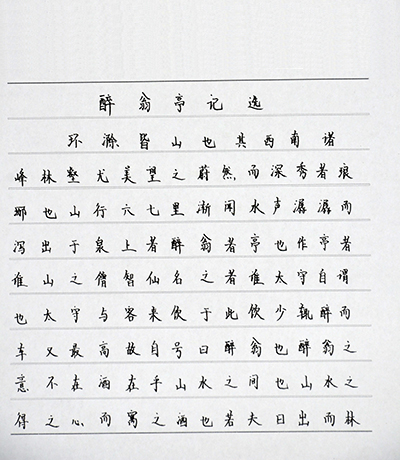 醉翁亭记选
环滁皆山也其西南诸
峰林壑尤美望之蔚然而深秀者琅
琊也山行六七里渐闻水声潺潺而
泻出于泉上者醉翁者亭也作亭者
谁山之僧智仙名之者谁太守自谓
也太守与客来饮于此饮少辄醉而
年又最高故自号曰醉翁也醉翁之
意不在酒在乎山水之间也山水之
得之心而寓之酒也若夫日出而林